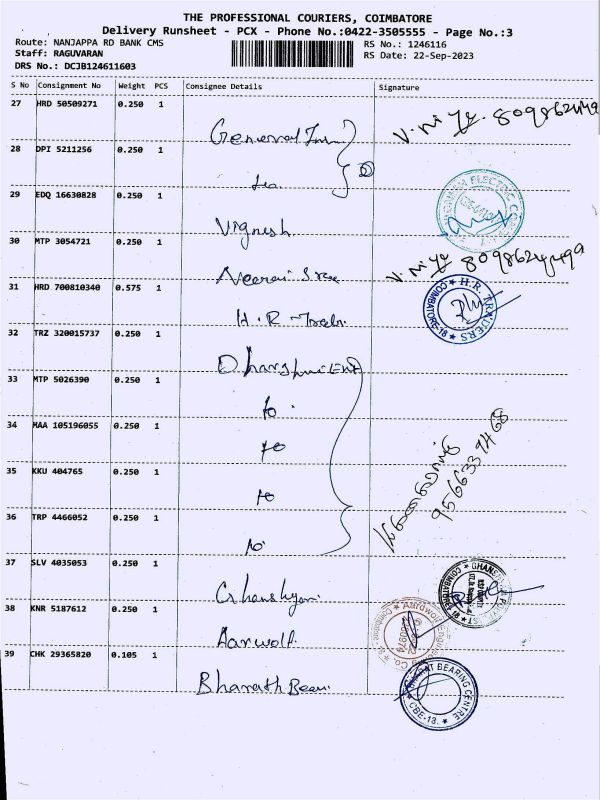 THE PROFESSIONAL COURIERS, COIMBATORE
Delivery Runsheet - PCX - Phone No.:0422-3505555 - Page No.:3
Route: NANJAPPA RD BANK CMS
RS No.: 1246116
Staff: RAGUVARAN
RS Date: 22-Sep-2023
DRS No.: DCJB124611603
S No Consignment No Weight PCS Consignee Details Signature
27 HRD 50509271 0.250 1
General
28 DPI 5211256 0.250 1
29 EDQ 16630828 0.250 1
Vignesh
30 MTP 3054721 0.250 1
Neerai Sree
8098624499
31 HRD 700810340 0.575 1
H.R
H.R. TRADERS
COIMBATORE-18
32 TRZ 320015737 0.250 1
33 MTP 5026390 0.250 1
to
34 MAA 105196055 0.250 1
to
9566339468
35 KKU 404765 0.250 1
to
36 TRP 4466052 0.250 1
to
37 SLV 4035053 0.250 1
Ghanshyam
38 KNR 5187612 0.250 1
Aarwolf
39 CHK 29365820 0.105 1
Bharath Beari
BHARAT BEARING CENTRE
CBE-18.